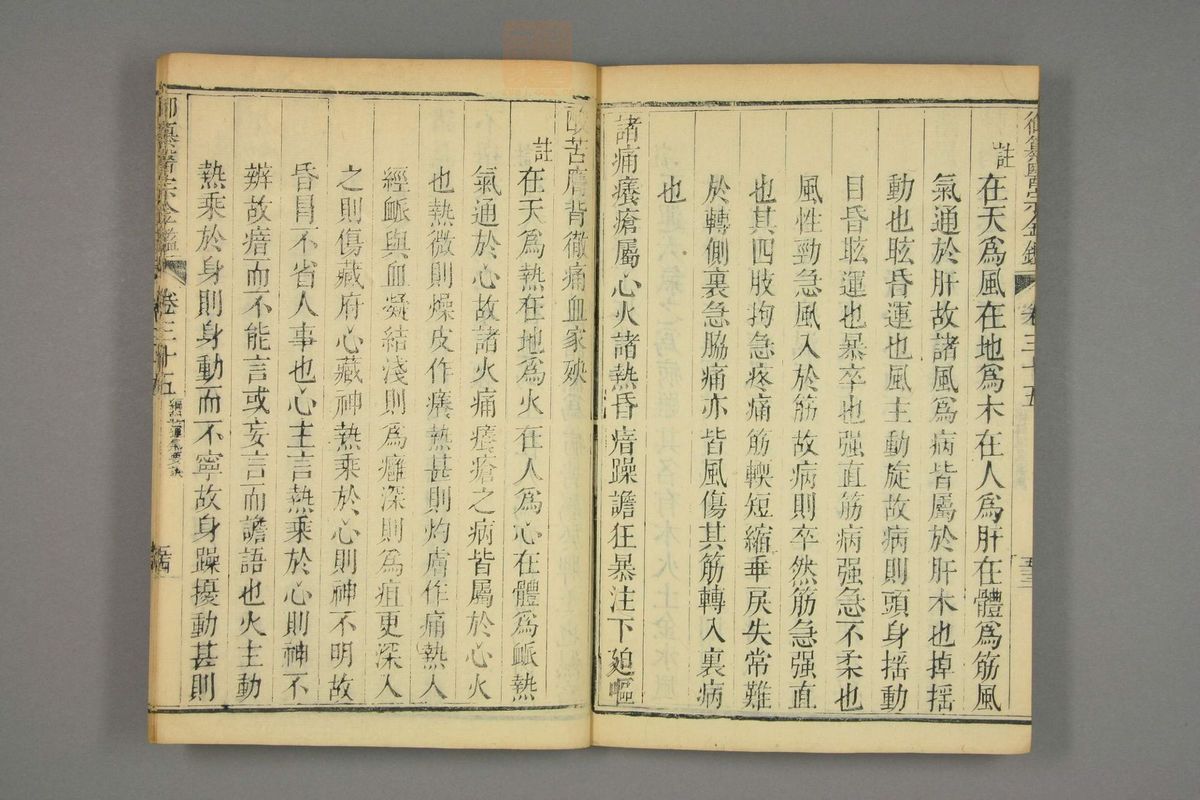 御纂醫宗金鑑
卷三十五
五三
註
在天爲風在地爲木在人爲肝在體爲筋風
氣通於肝故諸風爲病皆屬於肝木也掉揺
動也眩昏運也風主動旋故病則頭身揺動
目昏眩運也暴卒也强直筋病强急不柔也
風性勁急風入於筋故病則卒然筋急强直
也其四肢拘急疼痛筋輭短縮乖戾失常難
於轉側裏急脇痛亦皆風傷其筋轉入裏病
也
諸痛癢瘡屬心火諸熱昏瘖躁譫狂暴注下廹嘔
苦膚背徹痛血家殃
註
在天爲熱在地爲火在人爲心在體爲䘑熱
氣通於心故諸火痛癢瘡之病皆屬於心火
也熱微則燥皮作癢熱甚則灼膚作痛熱入
經䘑與血凝結淺則爲癰深則爲疽更深入
之則傷藏府心藏神熱乘於心則神不明故
昏冒不省人事也心主言熱乘於心則神不
辨故瘖而不能言或妄言而譫語也火主動
熱乘於身則身動而不寧故身躁擾動甚則
御纂醫宗金鑑
卷三十五
運氣要訣